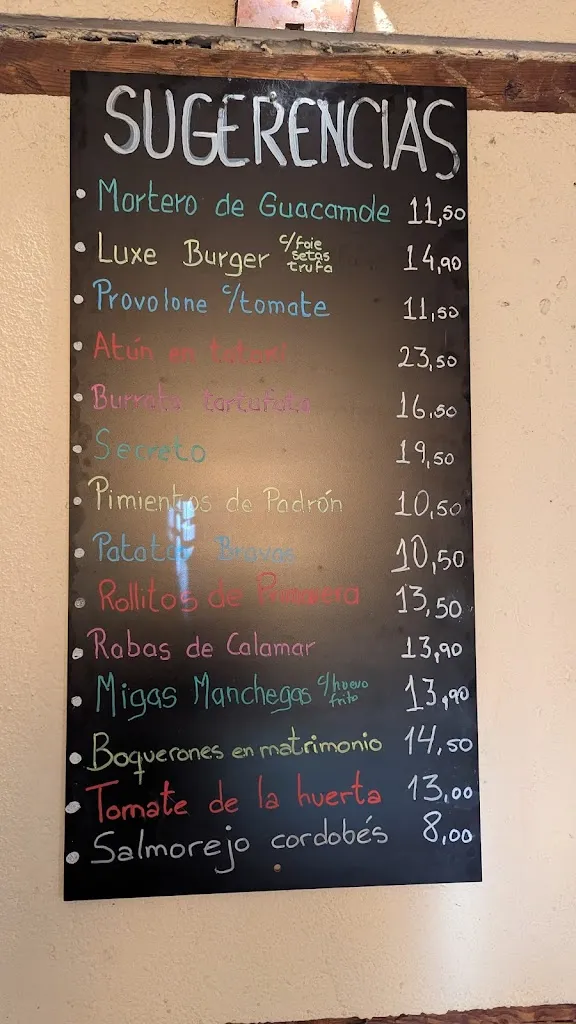 SUGERENCIAS
Mortero de Guacamole 11,50
Luxe Burger c/foie setas trufa 14,90
Provolone c/tomate 11,50
Atún en tataki 23,50
Burrata tartufata 16,50
Secreto 19,50
Pimientos de Padrón 10,50
Patatas Bravas 10,50
Rollitos de Primavera 13,50
Rabas de Calamar 13,90
Migas Manchegas c/huevo frito 13,90
Boquerones en matrimonio 14,50
Tomate de la huerta 13,00
Salmorejo cordobés 8,00